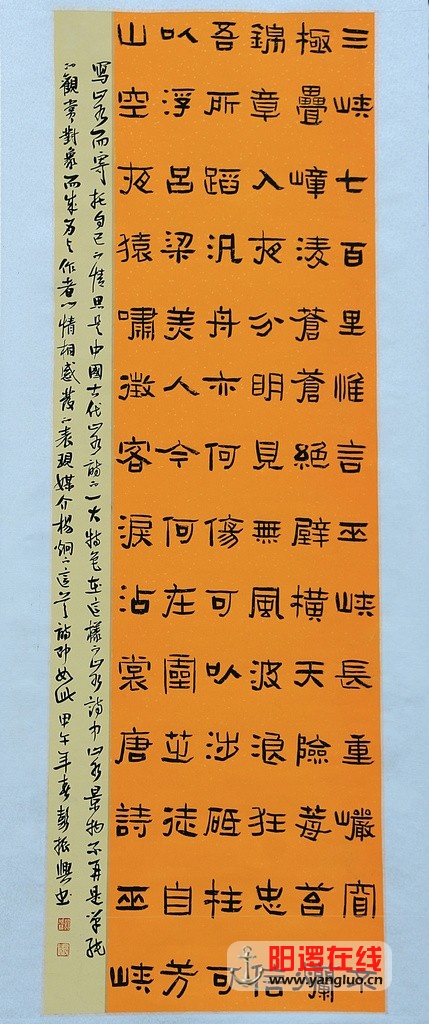 三峽七百里惟言巫峽長重巖窅不
極疊嶂淩蒼蒼絕壁橫天險莓苔爛
錦章入夜分明見無風波浪狂忠信
吾所蹈汎舟亦何傷可以涉砥柱可
以浮呂梁美人今何在靈芝徒自芳
山空夜猿嘯徵客淚沾裳唐詩巫峽
寫山水而寄托自己的情思是中國古代山水詩的一大特色在這樣的山水詩中山水景物不再是單純
的觀賞對象而成為與作者心情相感發的表現媒介楊炯的這首詩即如此甲午年春彭振興書
阳逻在线
www.yangluo.cn